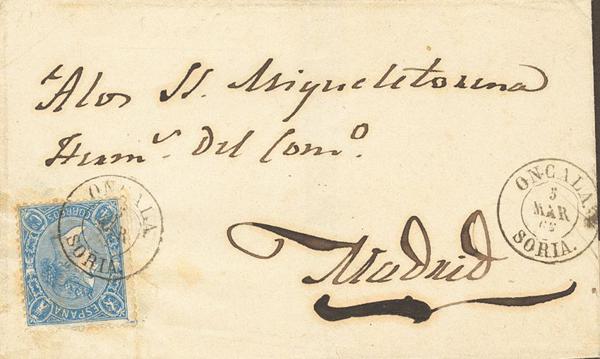 A los SS. Migueletorena
Herm.s Del Com.o
Madrid
ONCALA.
5
MAR
SORIA.
ONCALA.
MAR
SORIA.
CORREOS
ESPAÑA